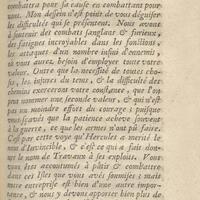 combatra pour sa cause en combattant pour
vous. Mon dessein n'est point de vous déguiser
les difficultés qui se présentent. Nous avons
à soutenir des combats sanglans & furieux,
des fatigues incroyables dans les fonctions,
les attaques d'un nombre infini d'ennemis, où
vous aurez besoin d'employer toute votre
valeur. Outre que la nécessité de toutes choses,
les injures du tems, & la difficulté des
chemins exerceront votre constance, que l'on
peut nommer une seconde valeur, & qui n'est
pas un moindre effet du courage: puisque
vous sçavés que la patience acheve souvent
à la guerre, ce que les armes n'ont pû faire.
C'est par cette voye qu'Hercules a merité le
nom d'Invincible, & c'est ce qui a fait don-
ner le nom de Travaux à ses exploits. Vous
vous êtes accoutumés à patir & combattre
dans ces Isles que vous avés soumises; mais
notre entreprise est bien d'une autre impor-
tance, & nous y devons apporter bien plus de